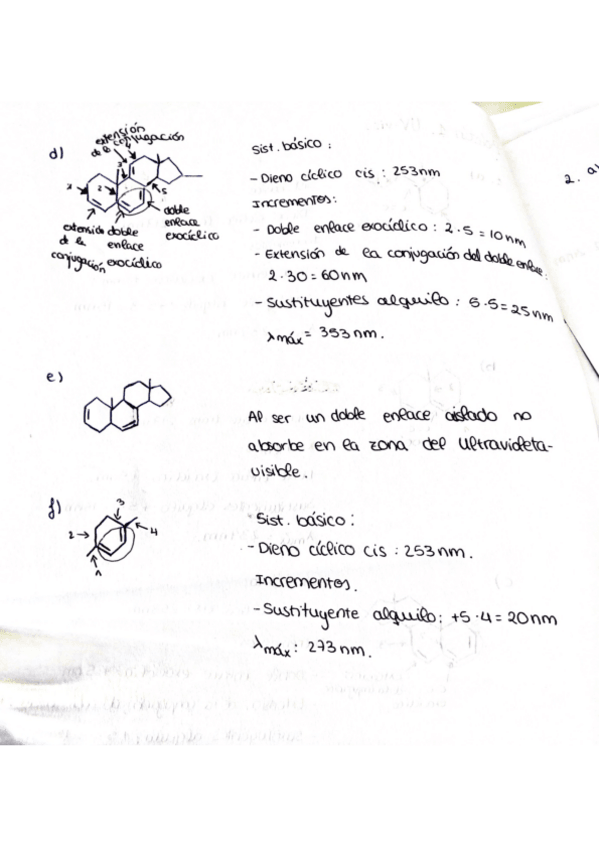 d)
extensión
de la conjugación
4
3
1
2
5
extensión
de la
conjugación
doble
enlace
exocíclico
doble
enlace
exocíclico
Sist. básico :
- Dieno cíclico cis : 253nm
Incrementos:
- Doble enlace exocíclico : 2·5 = 10nm
- Extensión de la conjugación del doble enlace:
2·30 = 60nm
- Sustituyentes alquilo : 5·5 = 25nm
λmáx = 353 nm.
2. a)
e)
Al ser un doble enlace aislado no
absorbe en la zona del Ultravioleta-
visible.
f)
3
2
4
1
Sist. básico :
- Dieno cíclico cis : 253nm.
Incrementos.
- Sustituyente alquilo: +5·4 = 20nm
λmáx: 273nm.